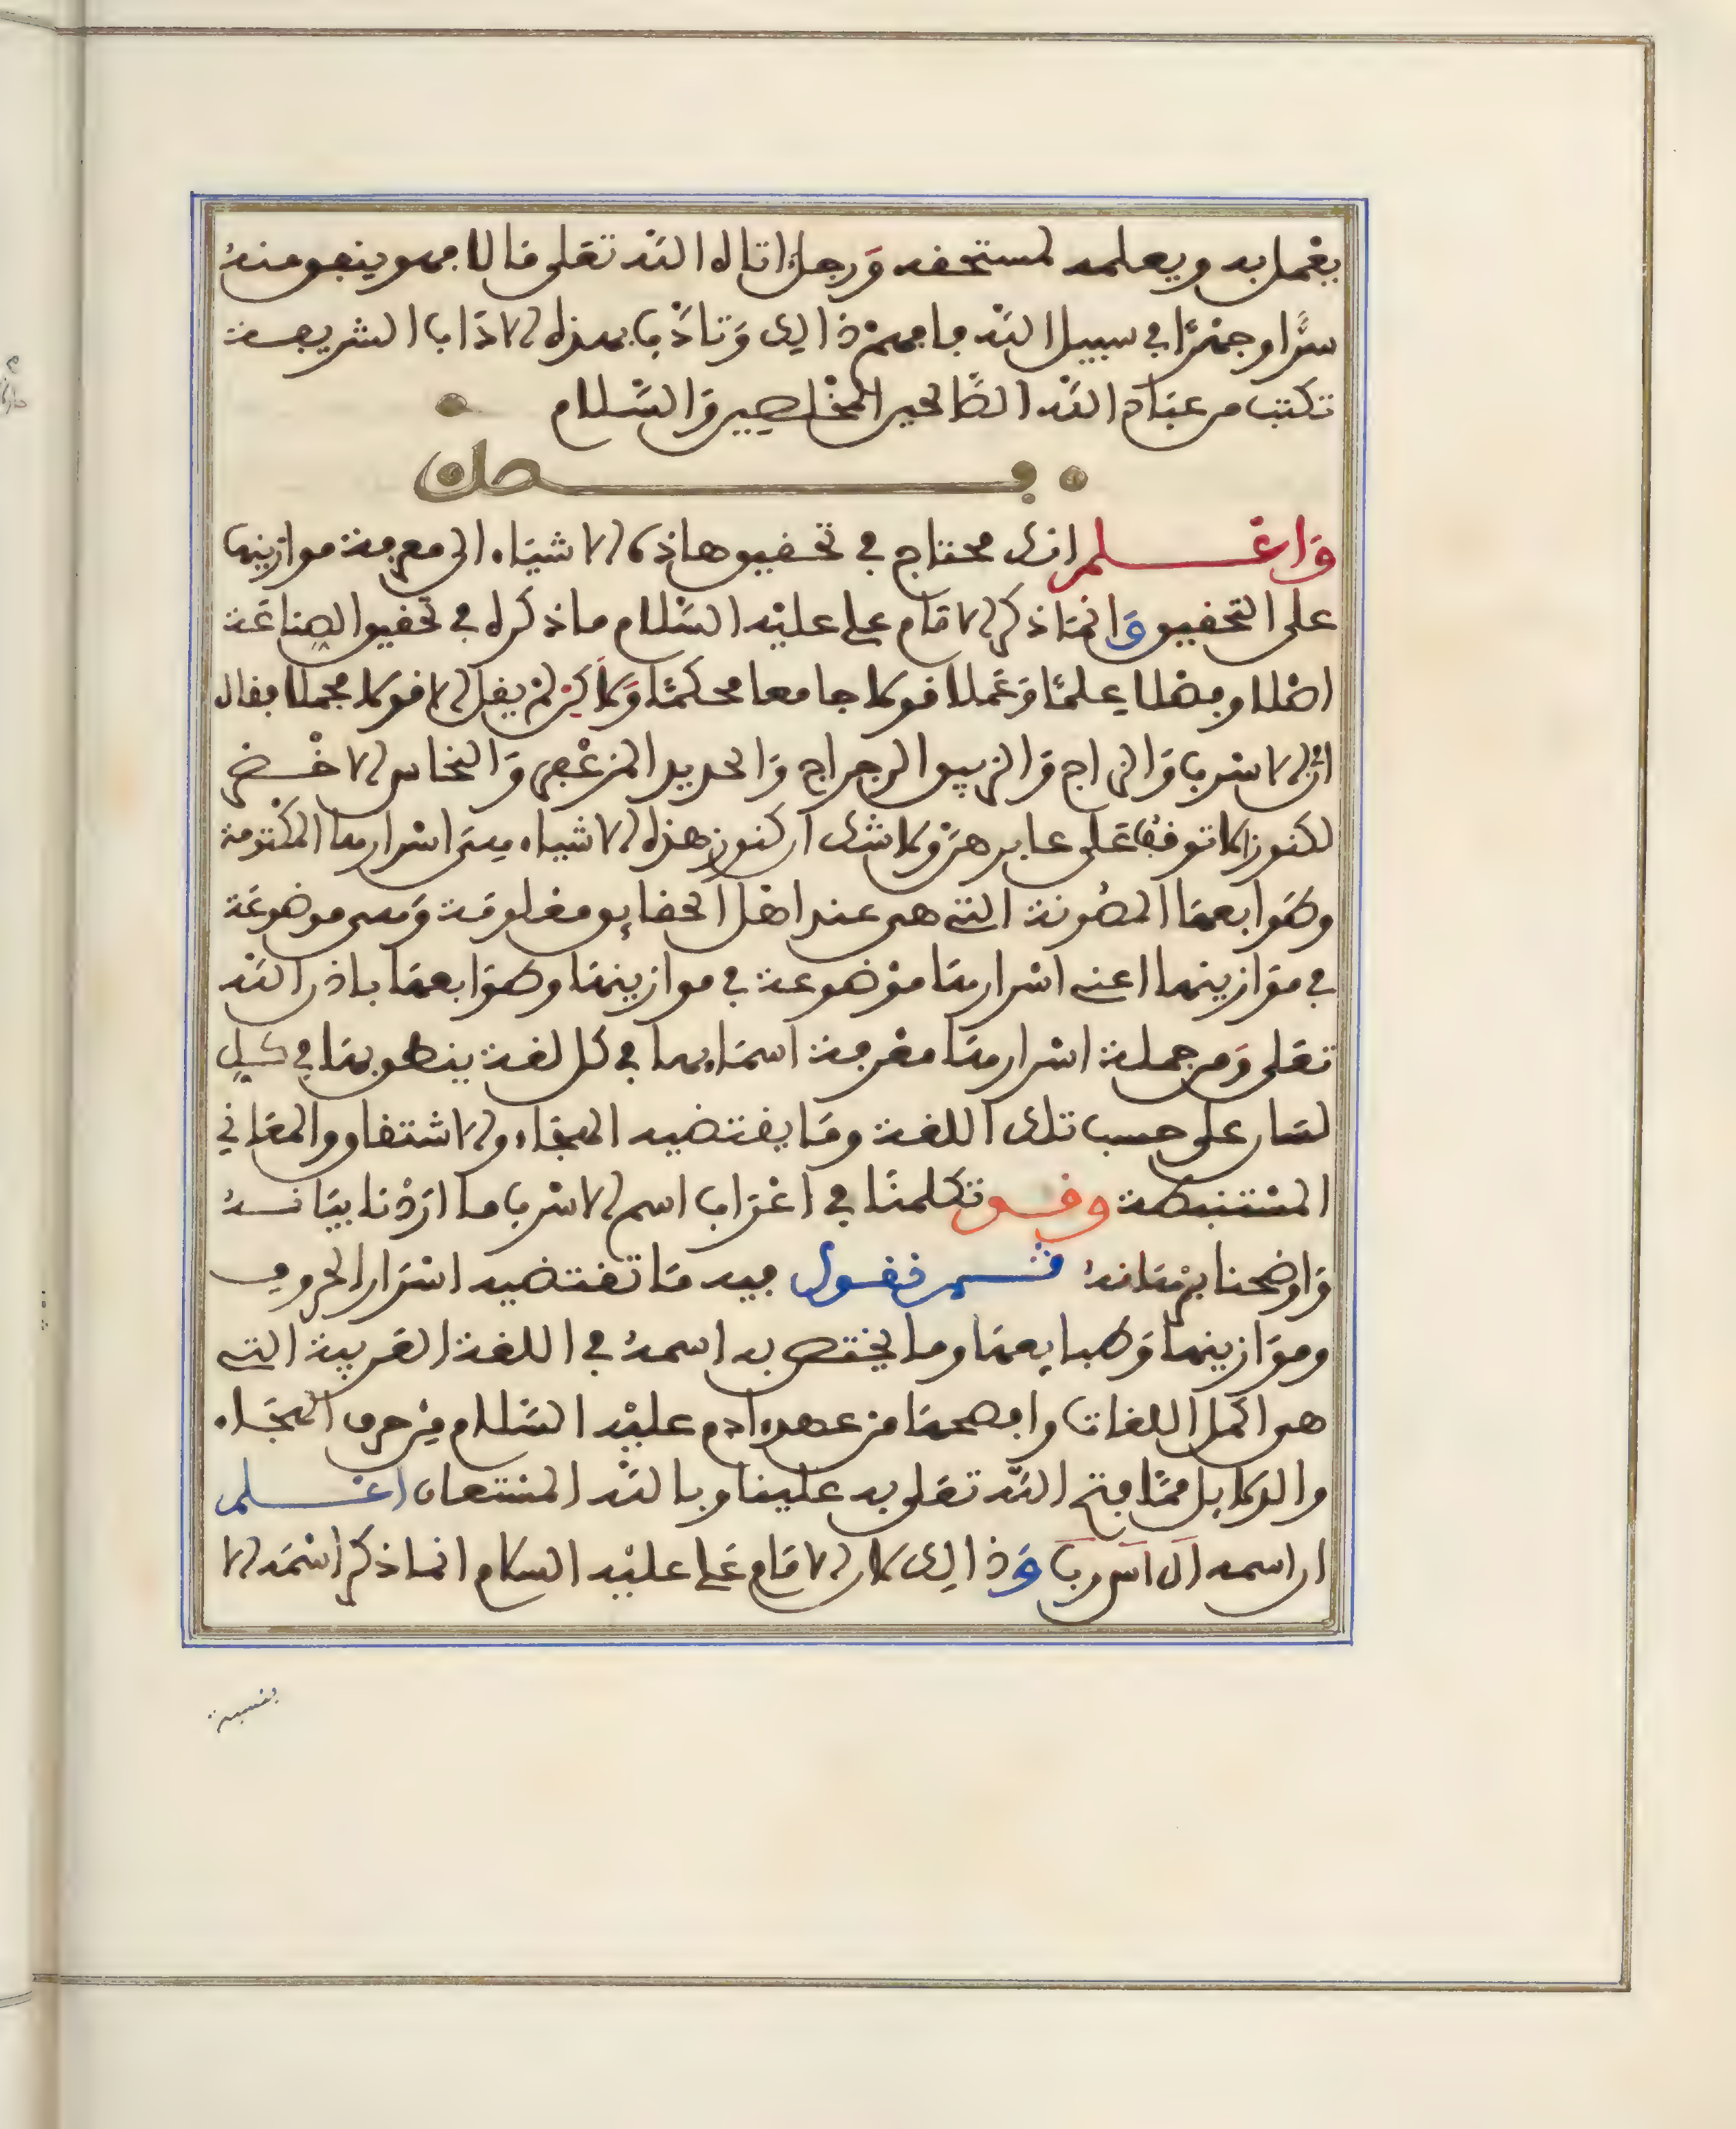 يعمل به ويعلمه لمستحقه ورجل اتاه الله تعلى مالا فهو ينفق منه
سرا وجهرا في سبيل الله فافهم ذالك وتادب بهذه الاداب الشريعة
تكتب من عباد الله الصالحين المخلصين والسلام
فصل
واعلم انك محتاج في تحقيق هاذه الاشياء الى معرفة موازينها
على التحقيق وانما ذكر الامام علي عليه السلام ما ذكره في تحقيق الصناعة
اصلا وفصلا علما وعملا قولا جامعا محكما ولاكن لم يقل الا قولا مجملا فقال
ان الاسرب والزاج والزيبق الرجراج والحديد المزعفر والنحاس الاخضر
لكنوز لا توقف على عابرهن ولا شك ان كنوز هذه الاشياء هي اسرارها المكتومة
وطوابعها المصونة التي هي عند اهل الحقايق معلومة وهي موضوعة
في موازينها اعني اسرارها موضوعة في موازينها وطوابعها باذن الله
تعلى ومن جملة اسرارها معرفة اسمايها في كل لغة ينطق بها في كل
لسان على حسب تلك اللغة وما يقتضيه الهجاء والاشتقاق والمعاني
المستنبطة وقد تكلمنا في اعراب اسم الاسرب ما اردنا بيانه
واوضحنا برهانه ثم نقول فيه ما تقتضيه اسرار الحروف
وموازينها وطبايعها وما يختص به اسمه في اللغة العربية التي
هي اكمل اللغات وافصحها من عهد ادم عليه السلام من حرف الهجاء
والدلايل مما فتح الله تعلى به علينا وبالله المستعان اعلم
ان اسمه ال اس رب وذالك لان الامام علي عليه السلام انما ذكر اسمه الا